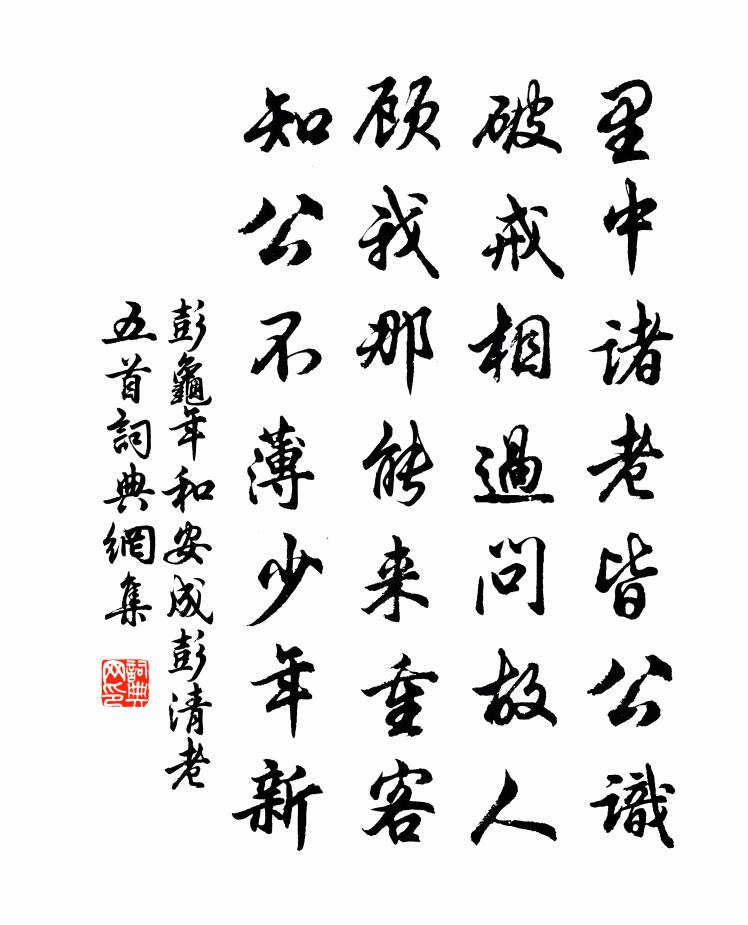 里中諸老皆公識
破戒相過問故人
顾我那能来重客
知公不薄少年新
彭龜年和安成彭清老
五首詞典網集
詞典网印